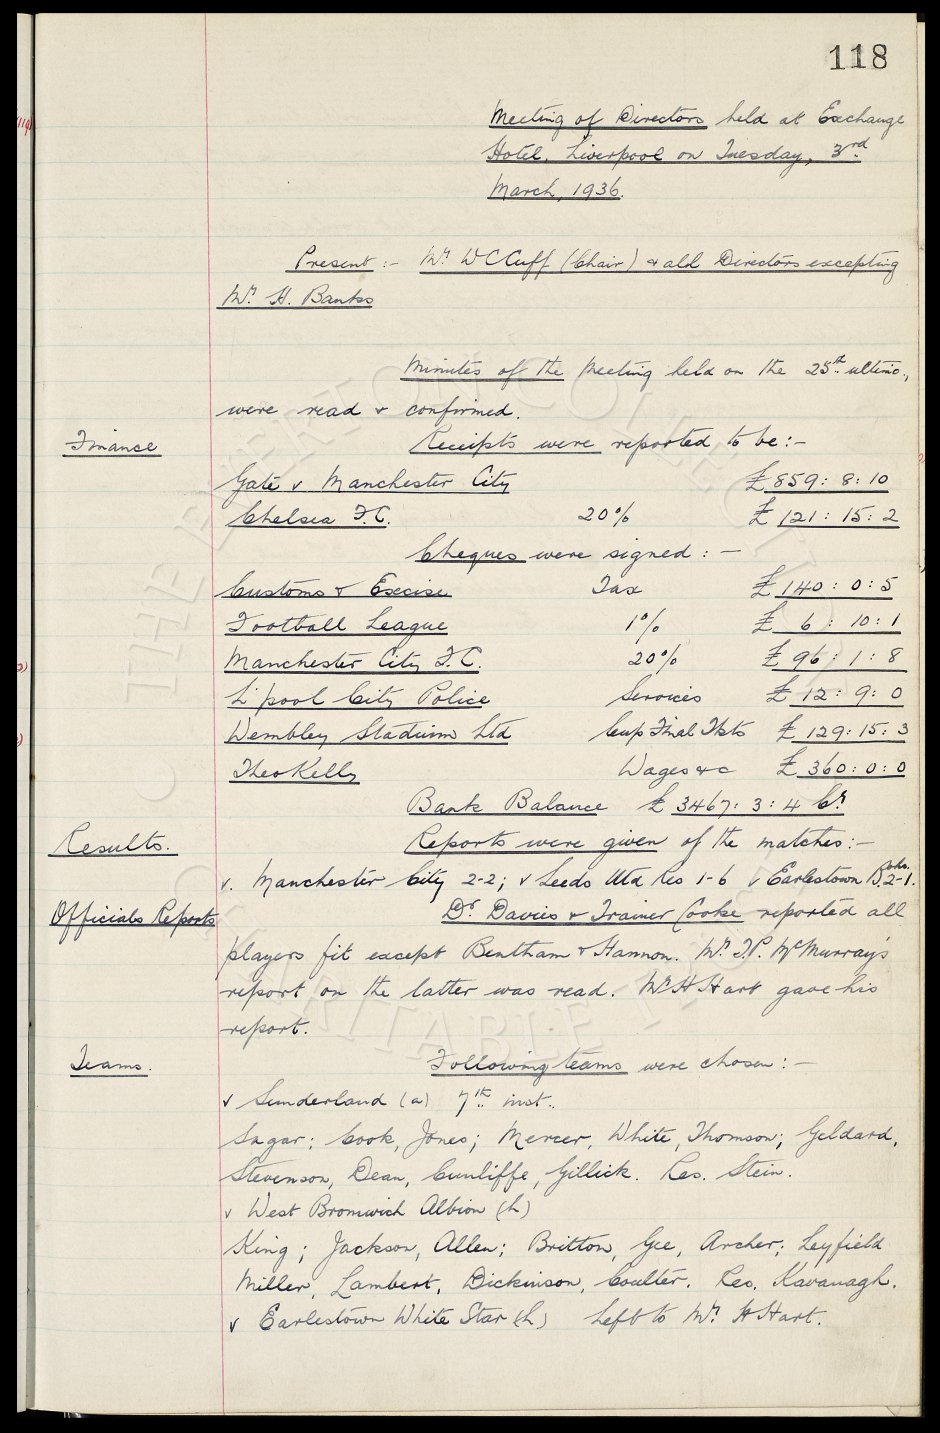 118
Meeting of Directors held at Exchange
Hotel, Liverpool on Tuesday, 3rd
March, 1936.
Present :- Mr. W C Cuff (Chair) & all Directors excepting
Mr. H. Banks
Minutes of the Meeting held on the 25th. ultimo.,
were read & confirmed.
Finance Receipts were reported to be:-
Gate v Manchester City £859: 8: 10
Chelsea F.C. 20% £ 121: 15: 2
Cheques were signed: -
Customs & Excise Tax £ 140: 0: 5
Football League 1% £ 6: 10: 1
Manchester City F.C. 20% £ 96: 1: 8
L'pool City Police Services £ 12: 9: 0
Wembley Stadium Ltd Cup Final Tkts £ 129: 15: 3
Theo Kelly Wages &c £ 360: 0: 0
Bank Balance £ 3467: 3: 4 Cr.
Results. Reports were given of the matches:-
v. Manchester City 2-2; v Leeds Utd Res 1-6 v Earlestown B. 2-1.
Officials Reports Dr. Davies & Trainer Cooke reported all
players fit except Bentham & Hannon. Mr. T.P. McMurray's
report on the latter was read. Mr H Hart gave his
report.
Teams. Following teams were chosen: -
v Sunderland (a) 7th. inst..
Sagar; Cook, Jones; Mercer, White, Thomson; Geldard,
Stevenson, Dean, Cunliffe, Gillick. Res. Stein.
v West Bromwich Albion (h)
King; Jackson, Allen; Britton, Gee, Archer; Leyfield
Miller, Lambert, Dickinson, Coulter. Res. Kavanagh.
v Earlestown White Star (h) Left to Mr. H Hart.